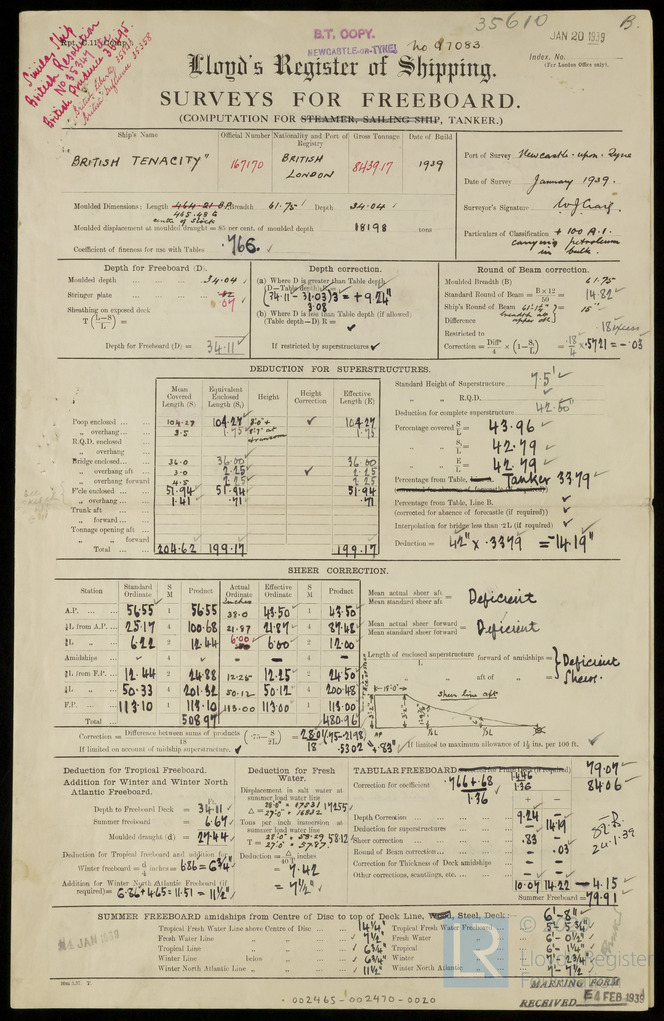 35610
B.
B.T. COPY.
JAN 20 1939
Rpt. C.11. Comp.
NEWCASTLE-ON-TYNE
No 97083
Index. No.
(For London Office only).
Similar Ship
British Resolution
No 35347
British Prudence 35195.
Lloyd's Register of Shipping.
SURVEYS FOR FREEBOARD.
(COMPUTATION FOR STEAMER, SAILING SHIP, TANKER.)
Ship's Name
Official Number
Nationality and Port of Registry
Gross Tonnage
Date of Build
"BRITISH TENACITY"
167170
BRITISH
LONDON
8439.17
1939
Port of Survey Newcastle-upon-Tyne
Date of Survey January 1939.
Surveyor's Signature
Particulars of Classification + 100 A.1.
carrying petroleum
in bulk.
Moulded Dimensions: Length 464.21 B.P. Breadth 61.75 Depth 34.04
465.48 to
centre of stock
Moulded displacement at moulded draught = 85 per cent. of moulded depth 18198 tons
Coefficient of fineness for use with Tables .766.
Depth for Freeboard (D).
Moulded depth 34.04
Stringer plate .07
Sheathing on exposed deck
T (L-S/L) =
Depth for Freeboard (D) = 34.11
Depth correction.
(a) Where D is greater than Table depth
(D-Table depth) R =
(34.11 - 31.03) 3 = + 9.24"
3.08
(b) Where D is less than Table depth (if allowed)
(Table depth-D) R =
If restricted by superstructures
Round of Beam correction.
Moulded Breadth (B) 61.75
Standard Round of Beam = B×12/50 = 14.82
Ship's Round of Beam = 15"
Difference .18 excess
Restricted to
Correction = Diff/4 × (1 - S/L) = .18/4 × .5721 = - .03
DEDUCTION FOR SUPERSTRUCTURES.
Mean Covered Length (S)
Equivalent Enclosed Length (S₁)
Height
Height Correction
Effective Length (E)
Poop enclosed 104.27 104.27 104.27
„ overhang 3.5 1.75 1.75
R.Q.D. enclosed
„ overhang
Bridge enclosed 36.0 36.00 36.00
„ overhang aft 3.0 2.25 2.25
„ overhang forward 4.5 2.25 2.25
F'cle enclosed 51.94 51.94 51.94
„ overhang 1.41 .71 .71
Trunk aft
„ forward
Tonnage opening aft
„ „ forward
Total 204.62 199.17 199.17
Standard Height of Superstructure 7.5'
„ „ R.Q.D.
Deduction for complete superstructure 42.00"
Percentage covered S/L = 43.96
„ „ S₁/L = 42.79
„ „ E/L = 42.79
Percentage from Table, Tanker 33.79
(corrected for absence of forecastle (if required))
Percentage from Table, Line B.
(corrected for absence of forecastle (if required))
Interpolation for bridge less than .2L (if required)
Deduction = 42" × .3379 = -14.19"
SHEER CORRECTION.
Station
Standard Ordinate
S M
Product
Actual Ordinate
Effective Ordinate
S M
Product
Inches
A.P. 56.55 1 56.55 38.0 43.50 1 43.50
⅙L from A.P. 25.17 4 100.68 21.87 21.87 4 87.48
⅓L „ 6.22 2 12.44 6.00 6.00 2 12.00
Amidships 4 4
⅓L from F.P. 12.44 2 24.88 12.25 12.25 2 24.50
⅙L „ 50.33 4 201.32 50.12 50.12 4 200.48
F.P. 113.10 1 113.10 113.00 113.00 1 113.00
Total 508.97 480.96
Mean actual sheer aft / Mean standard sheer aft = Deficient
Mean actual sheer forward / Mean standard sheer forward = Deficient
Length of enclosed superstructure forward of amidships =
L
„ „ aft of „ =
Deficient Sheer.
15'-0"
Sheer line aft
AP
⅙L
⅓L
Correction = Difference between sums of products/18 (.75 - S/2L) = 28.01/18 (.75-.2198) .5302 = +.83"
If limited on account of midship superstructure.
If limited to maximum allowance of 1½ ins. per 100 ft.
Deduction for Tropical Freeboard.
Addition for Winter and Winter North Atlantic Freeboard.
Depth to Freeboard Deck = 34.11
Summer freeboard = 6.67
Moulded draught (d) = 27.44
Deduction for Tropical freeboard and addition for
Winter freeboard = d/4 inches = 6.86 = 6¾"
Addition for Winter North Atlantic Freeboard (if required) = 6.86+4.65=11.51 = 11½"
Deduction for Fresh Water.
Displacement in salt water at summer load water line
28'0" = 17531 17255
Δ = 27'0" = 16832
Tons per inch immersion at summer load water line
28'0" = 58.29 58.12
T = 27'0" = 57.87
Deduction = Δ/40T inches
= 7.42
= 7½"
TABULAR FREEBOARD 79.07
Correction for coefficient .766+.68/1.36 1.446/1.36 84.06
+ -
Depth Correction 9.24 -
Deduction for superstructures - 14.19
Sheer correction .83 -
Round of Beam correction - .03
Correction for Thickness of Deck amidships - -
Other corrections, scantlings, etc. - -
10.07 14.22 - 4.15
Summer Freeboard = 79.91
24.1.39
SUMMER FREEBOARD amidships from Centre of Disc to top of Deck Line, Wood, Steel, Deck:- 6'-8"
Tropical Fresh Water Line above Centre of Disc 14¼" Tropical Fresh Water Freeboard 5'-5¾"
Fresh Water Line „ „ 7½" Fresh Water „ 6'-0½"
Tropical Line „ „ 6¾" Tropical „ 6'-1¼"
Winter Line below „ 6¾" Winter „ 7'-2¾"
Winter North Atlantic Line „ „ 11½" Winter North Atlantic „ 7'-7½"
24 JAN 1939
LR
Lloyd's Register
MARKING FORM
RECEIVED 4 FEB 1939
002465-002470-0020